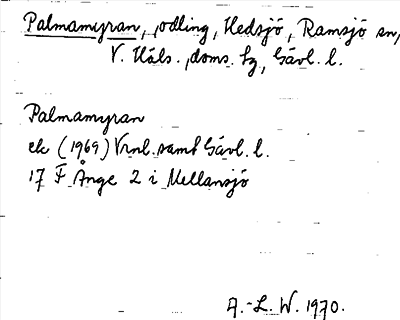 Palmamyran, odling, Hedsjö, Ramsjö sn,
V. Häls. doms. fg, Gävl. l.
Palmamyran
ek (1969) Vrnl. samt Gävl. l.
17 F Ånge 2 i Mellansjö
A.-L. W. 1970.